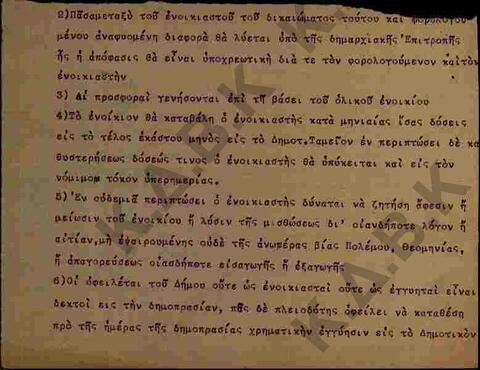 2)Πᾶσαμεταξὺ τοῦ ἐνοικιαστοῦ τοῦ δικαιώματος τούτου καὶ φορολογου
μένου ἀναφυομένη διαφορὰ θὰ λύεται ὑπὸ τῆς δημαρχιακῆς Ἐπιτροπῆς
ἧς ἡ ἀπόφασις θὰ εἶναι ὑποχρεωτικὴ διὰ τε τὸν φορολογούμενον καὶτὸν
ἐνοικιαστὴν
3) Αἱ προσφοραὶ γενήσονται ἐπὶ τῇ βάσει τοῦ ὁλικοῦ ἐνοικίου
4)Τὸ ἐνοίκιον θὰ καταβάλῃ ὁ ἐνοικιαστὴς κατὰ μηνιαίας ἴσας δόσεις
εἰς τὸ τέλος ἑκάστου μηνὸς εἰς τὸ Δημοτ.Ταμεῖον ἐν περιπτώσει δὲ κα
θυστερήσεως δόσεώς τινος ὁ ἐνοικιαστὴς θὰ ὑπόκειται καὶ εἰς τὸν
νόμιμον τόκον ὑπερημερίας.
5) Ἐν οὐδεμιᾷ περιπτώσει ὁ ἐνοικιαστὴς δύναται νὰ ζητήσῃ ἄφεσιν ἢ
μείωσιν τοῦ ἐνοικίου ἢ λύσιν τῆς μισθώσεως δι' οἱανδήποτε λόγον ἢ
αἰτίαν,μὴ ἐξαιρουμένης οὐδὲ τῆς ἀνωτέρας βίας Πολέμου, θεομηνίας,
ἢ ἀπαγορεύσεως οἱασδήποτε εἰσαγωγῆς ἢ ἐξαγωγῆς
6)Οἱ ὀφειλέται τοῦ Δήμου οὔτε ὡς ἐνοικιασταὶ οὔτε ὡς ἐγγυηταὶ εἶναι
δεκτοὶ εἰς τὴν δημοπρασίαν, πᾶς δὲ πλειοδότης ὀφείλει νὰ καταθέσῃ
πρὸ τῆς ἡμέρας τῆς δημοπρασίας χρηματικὴν ἐγγύησιν εἰς τὸ Δημοτικὸν